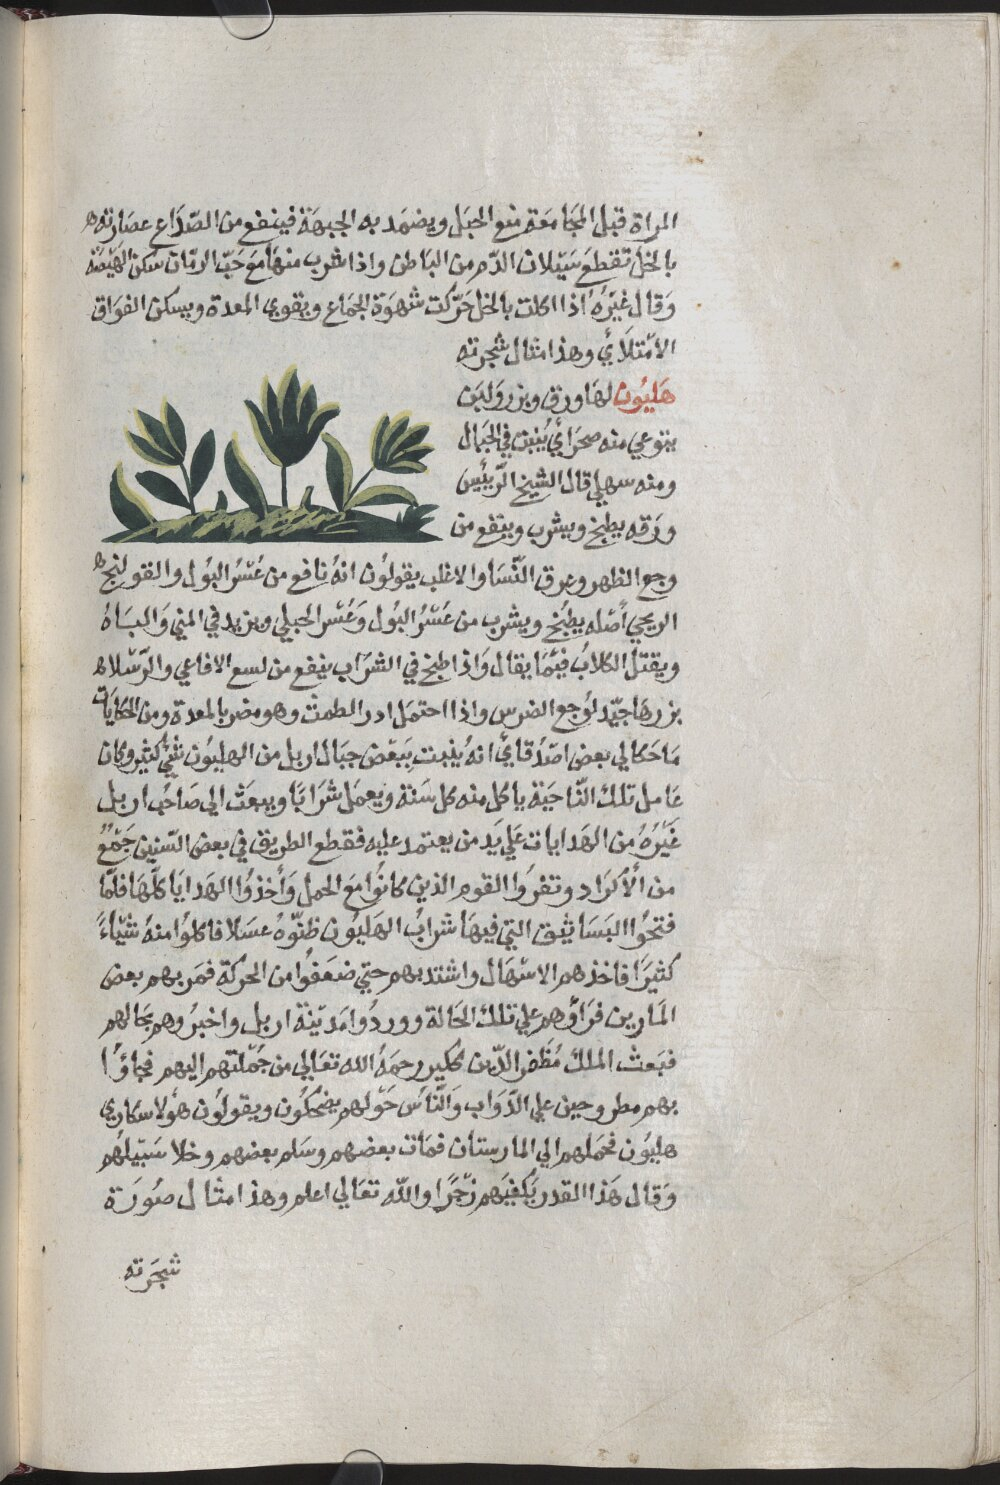 المراة قبل المجَامَعة منع الحبَل ويضمَد به الجبهَة فينفع من الصّدَاع عصَارته
بالخل تقطع سَيَلان الدّم من البَاطن واذا شرب منهَا مَع حَبّ الرمّان سَكن الهَيْضَة
وَقال غيْرهُ اذا اكلت بالخل حَرّكت شهوَة الجمَاع ويقوي المعدة ويسكن الفوَاق
الامْتلَائي وهذا مثال شجرته
هَليُون لهَا ورق وبزر وَلبَن
يتوعي منه صحرَائي يُنبت في الجبَال
ومنه سهلي قال الشيخ الرّيئيس
ورَقه يطبخ ويشرب وينفع من
وجع الظهر وعرق النّسَا والاغلب يقولوُن انهُ نافع من عُسْرُ البوُل والقولنج
الريحي أصْله يطبُخ ويشرب من عُسْرُ البوُل وَعُسْر الحبلي ويزيد في المني وَالبَاهُ
ويقتل الكلابُ فيْمَا يقال وَاذا طبخ في الشرَاب ينفع من لسع الافاعي والرّتيلا
بزرهَا جيّد لوَجع الضرس واذا احتمَل ادر الطمث وهو مضر بالمعدة ومن الحكايَات
مَا حَكا لي بعض اصْدقائي انهُ ينبت ببَعْض جبَال اربل من الهليوُن شيٌ كثير وكان
عَامل تلك النّاحيَة ياكل منه كل سَنة ويعمَل شرَابَا ويبعَث الي صَاحُب اربل
غَيْرُهُ من الهدايات علي يَد من يعتمد عليه فقطع الطريق في بعض السّنين جَمْعٌ
من الْأكرَاد وتفرُوا القوم الذين كانوُا مَع الحمل وَأخذوُا الهَدايَا كلّهَا فلمّا
فتحُوا البَسَاتيق التي فيهَا شرابُ الهَليوُن ظنّوهُ عسَلا فاكلوُا منهُ شيْاءً
كثيرَا فاخذهم الاسْهَال واشتد بهم حتي ضعَفوُا من الحركة فمَر بهم بعض
المَارين فرَأوْهم علي تلك الحَالة ووردُوا مَديْنة اربل واخبرُوهم بحَالهم
فبَعث الملك مُظَفر الدّين ككبر رحمَهُ الله تعَالي من جُمْلتهم اليهم فجاؤا
بهم مطروحين علي الدّوَاب وَالنّاسُ حَوْلهم يضحَكوُن ويقولوُن هؤلا سكاري
هليوُن فحمَلهم الي المارستان فمَات بعضهم وسَلم بعضهم وخلا سَبيْلهُم
وَقال هَذا القدر يكفيَهم زجْرًا والله تعَالي اعلم وهذا مثال صوُرَة
شجَرَته